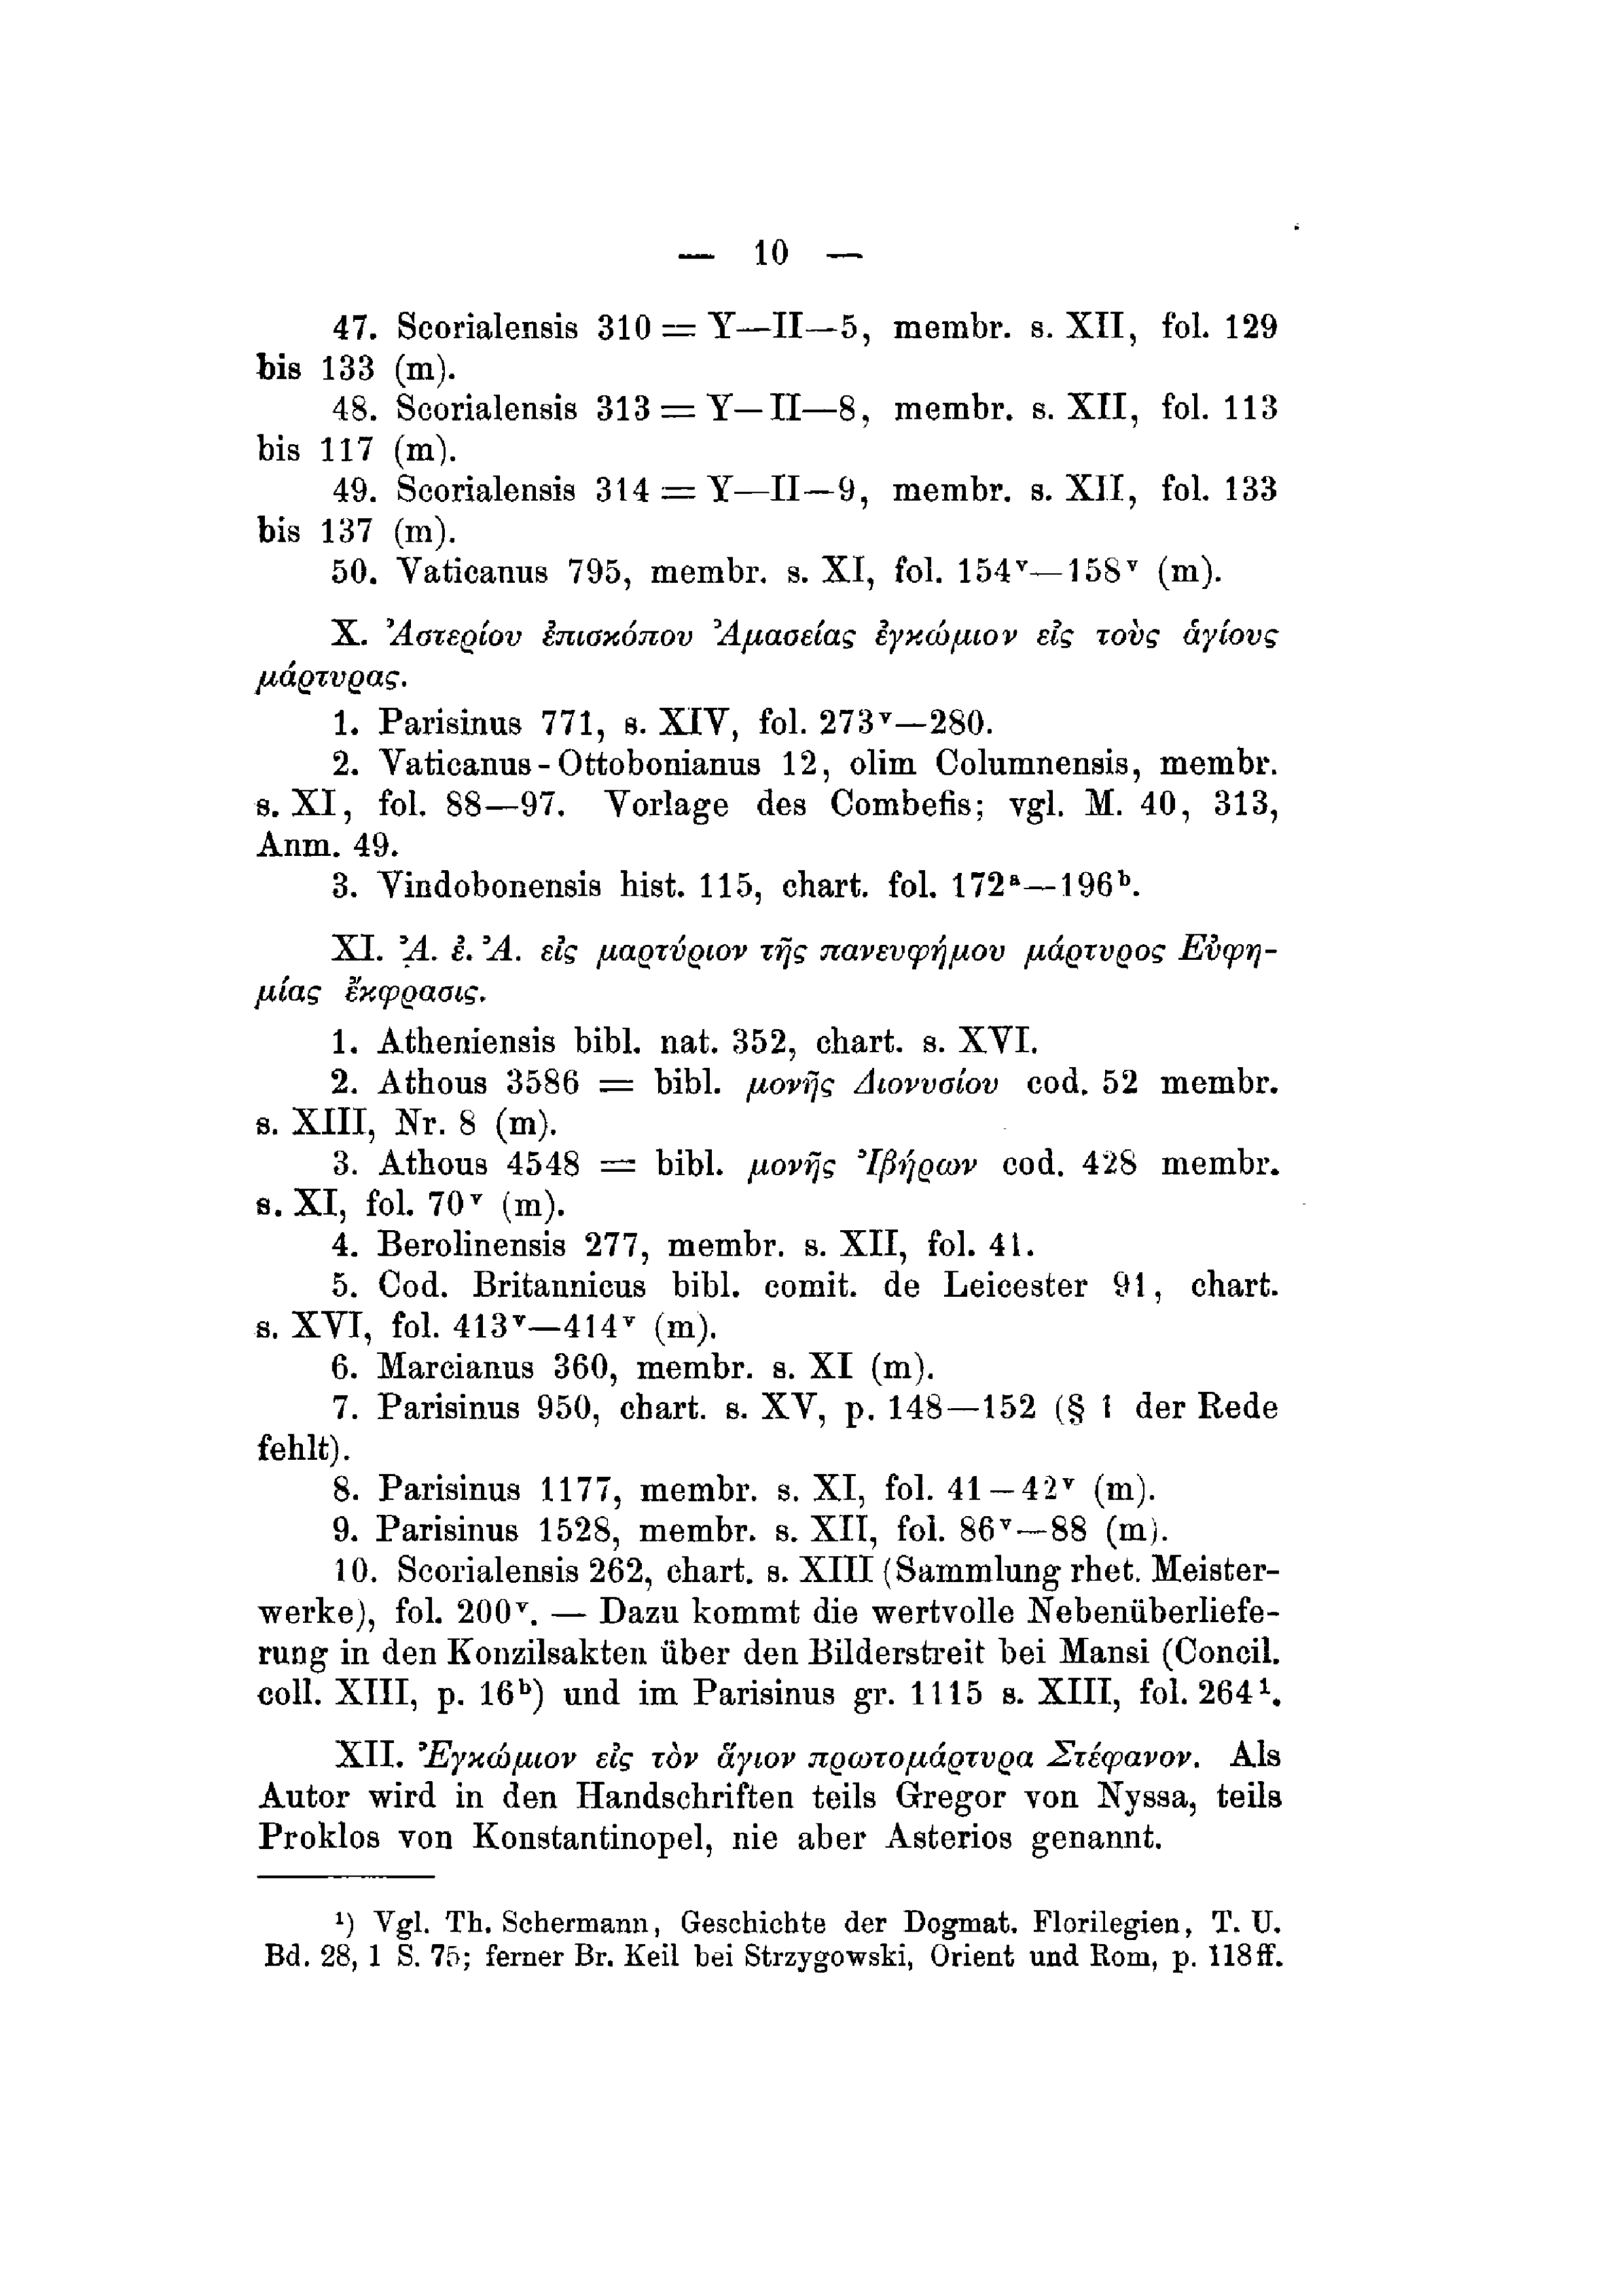 — 10 —
47. Scorialensis 310 = Y—II—5, membr. s. XII, fol. 129
bis 133 (m).
48. Scorialensis 313 = Y—II—8, membr. s. XII, fol. 113
bis 117 (m).
49. Scorialensis 314 = Y—II—9, membr. s. XII, fol. 133
bis 137 (m).
50. Vaticanus 795, membr. s. XI, fol. 154ᵛ—158ᵛ (m).
X. Ἀστερίου ἐπισκόπου Ἀμασείας ἐγκώμιον εἰς τοὺς ἁγίους
μάρτυρας.
1. Parisinus 771, s. XIV, fol. 273ᵛ—280.
2. Vaticanus-Ottobonianus 12, olim Columnensis, membr.
s. XI, fol. 88—97. Vorlage des Combefis; vgl. M. 40, 313,
Anm. 49.
3. Vindobonensis hist. 115, chart. fol. 172ᵃ—196ᵇ.
XI. Ἀ. ἐ. Ἀ. εἰς μαρτύριον τῆς πανευφήμου μάρτυρος Εὐφη-
μίας ἔκφρασις.
1. Atheniensis bibl. nat. 352, chart. s. XVI.
2. Athous 3586 = bibl. μονῆς Διονυσίου cod. 52 membr.
s. XIII, Nr. 8 (m).
3. Athous 4548 = bibl. μονῆς Ἰβήρων cod. 428 membr.
s. XI, fol. 70ᵛ (m).
4. Berolinensis 277, membr. s. XII, fol. 41.
5. Cod. Britannicus bibl. comit. de Leicester 91, chart.
s. XVI, fol. 413ᵛ—414ᵛ (m).
6. Marcianus 360, membr. s. XI (m).
7. Parisinus 950, chart. s. XV, p. 148—152 (§ 1 der Rede
fehlt).
8. Parisinus 1177, membr. s. XI, fol. 41—42ᵛ (m).
9. Parisinus 1528, membr. s. XII, fol. 86ᵛ—88 (m).
10. Scorialensis 262, chart. s. XIII (Sammlung rhet. Meister-
werke), fol. 200ᵛ. — Dazu kommt die wertvolle Nebenüberliefe-
rung in den Konzilsakten über den Bilderstreit bei Mansi (Concil.
coll. XIII, p. 16ᵇ) und im Parisinus gr. 1115 s. XIII, fol. 264¹.
XII. Ἐγκώμιον εἰς τὸν ἅγιον πρωτομάρτυρα Στέφανον. Als
Autor wird in den Handschriften teils Gregor von Nyssa, teils
Proklos von Konstantinopel, nie aber Asterios genannt.
¹) Vgl. Th. Schermann, Geschichte der Dogmat. Florilegien, T. U.
Bd. 28, 1 S. 75; ferner Br. Keil bei Strzygowski, Orient und Rom, p. 118ff.